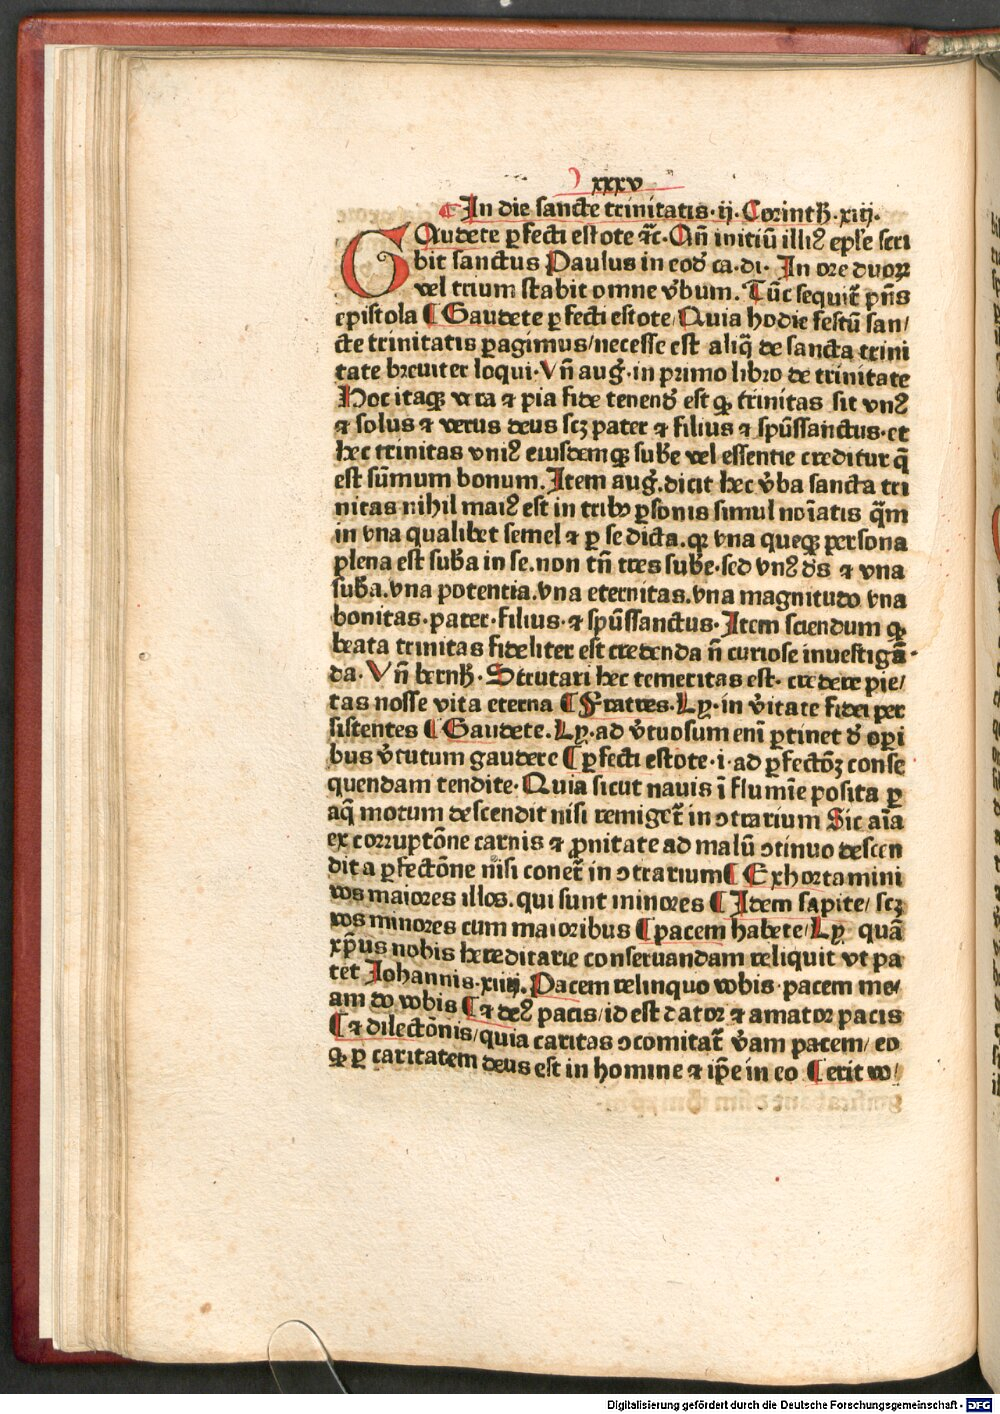 xxxv
⸿ In die sancte trinitatis· ij· Corinth̄· xiij·
GAudete ꝑfecti estote ⁊c̄· Añ initiū illiꝰ ep̄le scri
bit sanctus Paulus in eod̄ ca· di· In ore duoꝝ
vel trium stabit omne v̄bum. Tūc sequit̄ p̄ns
epistola ⸿ Gaudete ꝑfecti estote/ Quia hodie festū san/
cte trinitatis ꝑagimus/ necesse est aliq̄ de sancta trini
tate breuiter loqui· Vñ auḡ· in primo libro de trinitate
Hoc itaqꝫ vera ⁊ pia fide tenend̄ est ꝙ trinitas sit vnꝰ
⁊ solus ⁊ verus deus scꝫ pater ⁊ filius ⁊ sp̄ussanctus· et
hec trinitas vniꝰ eiusdemqꝫ sub̄e vel essentie creditur q̄
est sūmum bonum. Item auḡ. dicit hec v̄ba sancta tri
nitas nihil maiꝰ est in tribꝰ ꝑsonis simul noīatis q̄m
in vna qualibet semel ⁊ ꝑ se dicta. qꝛ vna queqꝫ persona
plena est sub̄a in se. non tñ tres sub̄e· sed vnꝰ d̄s ⁊ vna
sub̄a. vna potentia. vna eternitas. vna magnitudo vna
bonitas· pater· filius· ⁊ sp̄ussanctus· Item sciendum ꝙ
beata trinitas fideliter est credenda ñ curiose inuestigā
da· Vñ bernh̄· Scrutari hec temeritas est· credere pie/
tas nosse vita eterna ⸿ Fratres· Ly· in v̄itate fidei per
sistentes ⸿ Gaudete. Ly· ad v̄tuosum enī ꝑtinet d̄ oꝑi
bus v̄tutum gaudere ⸿ ꝑfecti estote· i· ad ꝑfectōꝫ conse
quendam tendite· Quia sicut nauis ī flumīe posita ꝑ
aq̄ motum descendit nisi remiget̄ in ↄtrarium Sic aīa
ex corruptōne carnis ⁊ ꝓnitate ad malū ↄtinuo descen
dit a ꝑfectōne nisi conet̄ in ↄtrarium ⸿ Exhortamini
vos maiores illos. qui sunt minores ⸿ Idem sapite/ scꝫ
vos minores cum maioribus ⸿ pacem habete/ Ly quā
xp̄us nobis hereditarie conseruandam reliquit vt pa
tet Johannis· xiiij. Pacem relinquo vobis· pacem me/
am do vobis ⸿ ⁊ deꝰ pacis/ id est dator ⁊ amator pacis
⸿ ⁊ dilectōnis/ quia caritas ↄcomitat̄ v̄am pacem/ eo
ꝙ ꝑ caritatem deus est in homine ⁊ ip̄e in eo ⸿ erit vo/
Digitalisierung gefördert durch die Deutsche Forschungsgemeinschaft - DFG